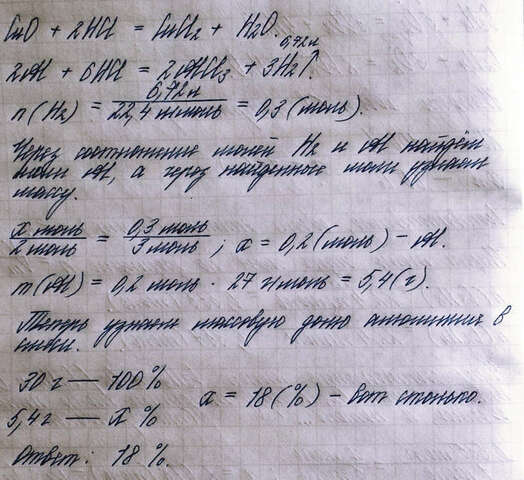 CuO + 2HCl = CuCl2 + H2O.
6,72л
2Al + 6HCl = 2AlCl3 + 3H2↑.
n(H2) = 6,72л / 22,4 л/моль = 0,3 (моль).
Через соотношение молей H2 и Al найдём
моли Al, а через найденные моли узнаем
массу.
x моль / 2 моль = 0,3 моль / 3 моль ; x = 0,2 (моль) – Al.
m(Al) = 0,2 моль · 27 г/моль = 5,4 (г).
Теперь узнаем массовую долю алюминия в
смеси.
30 г — 100 %
5,4 г — X % x = 18 (%) – вот столько.
Ответ: 18 %.